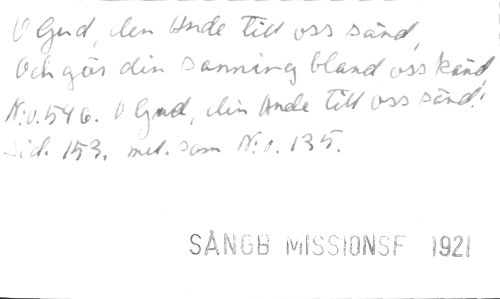 O Gud, din Ande till oss sänd,
Och gör din sanning bland oss känd,
N:o. 546. O Gud, din Ande till oss sänd!
sid. 153. mel. som N:o. 135.
SÅNGB MISSIONSF 1921